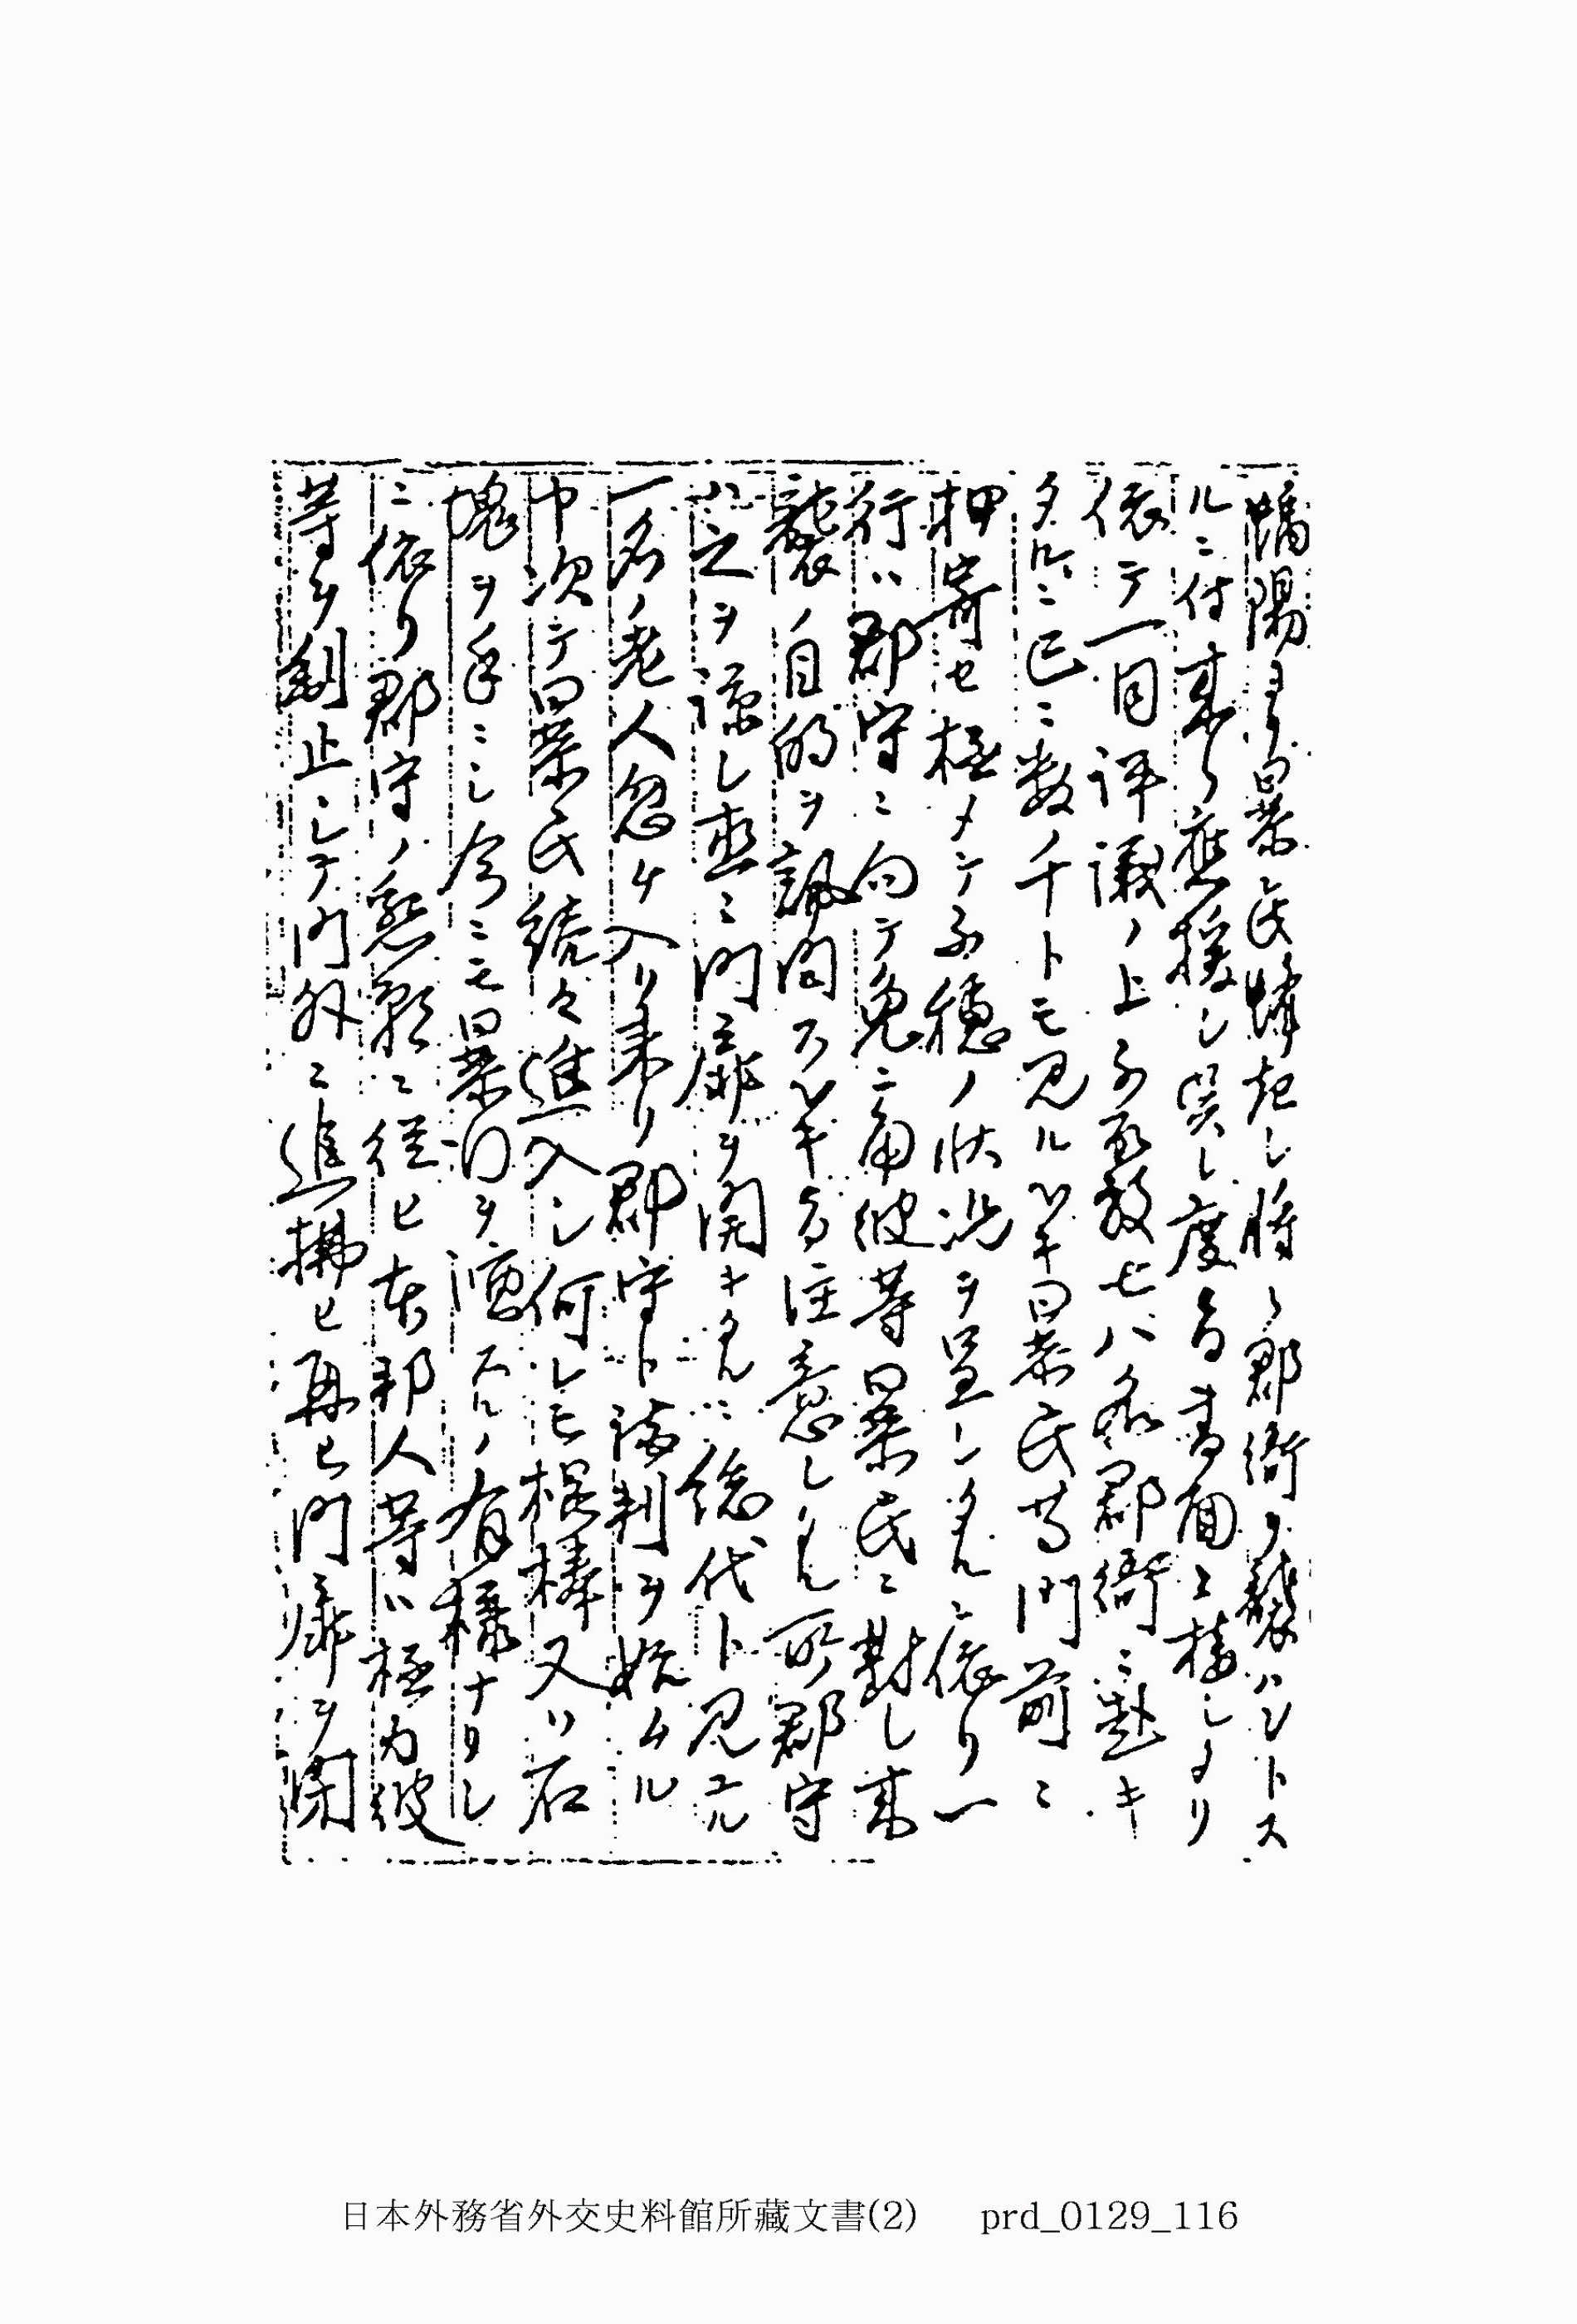 陽ヨリ暴民蜂起シ将ニ郡衙ヲ襲ハントス
ルニ付来リ應援シ呉レ度旨書面ニ接シタリ
依テ一同評議ノ上不取敢七八名郡衙ニ赴キ
タルニ已ニ数千トモ見ルヘキ暴民等門前ニ
押寄セ極メテ不穏ノ状况ヲ呈シタルニ依リ一
行ハ郡守ニ向テ兎ニ角彼等暴民ニ對シ来
襲ノ目的ヲ訊問スヘキ旨注意シタル所郡守
ハ之ヲ諒シ直ニ門扉ヲ開キタルニ総代ト見エル
一名ノ老人忽チ入リ来リ郡守ト談判ヲ始ムル
中次テ暴民続々進入シ何レモ棍棒又ハ石
塊ヲ手ニシ今ニモ暴行ヲ逞スルノ有様ナリシ
ニ依リ郡守ノ懇願ニ従ヒ本邦人等ハ極力彼
等ヲ制止シテ門外ニ追拂ヒ再ヒ門扉ヲ閉
日本外務省外交史料館所藏文書(2) prd_0129_116